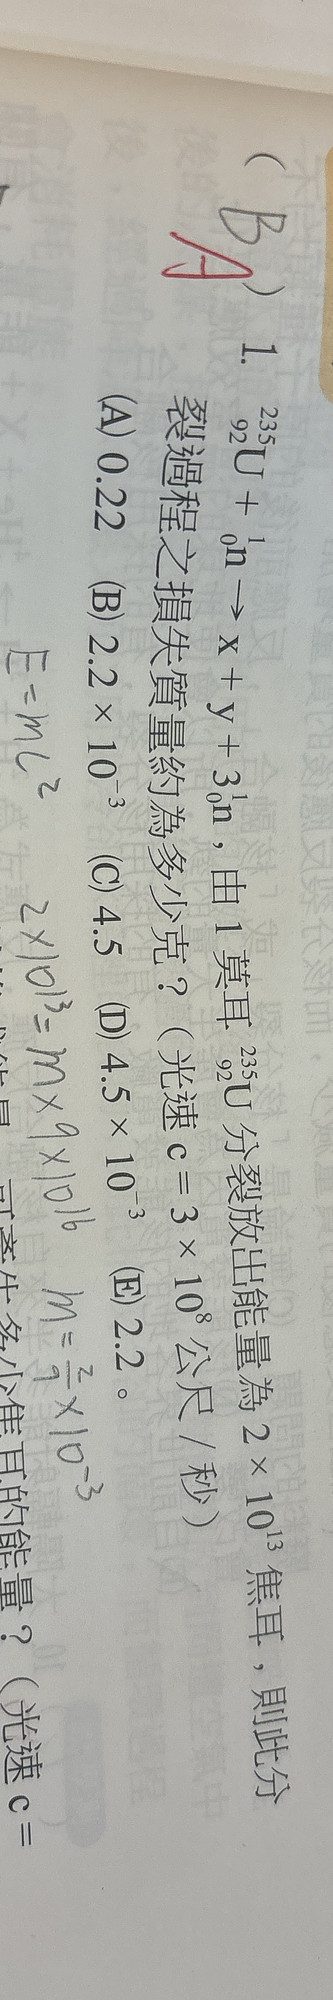 ( B ) 1. ²³⁵₉₂U + ¹₀n → x + y + 3¹₀n,由 1 莫耳 ²³⁵₉₂U 分裂放出能量為 2 × 10¹³ 焦耳,則此分
A
裂過程之損失質量約為多少克?(光速 c = 3 × 10⁸ 公尺/秒)
(A) 0.22 (B) 2.2 × 10⁻³ (C) 4.5 (D) 4.5 × 10⁻³ (E) 2.2。
E = mc² 2×10¹³ = m×9×10¹⁶ m = 2/9 ×10⁻³
能量,可產生多少焦耳的能量?(光速 c =